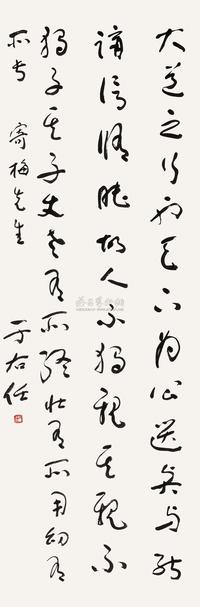 大道之行也天下为公选矣与能
讲信修睦故人不独亲其亲不
独子其子使老有所终壮有所用幼有
所长 寄梅先生
于右任